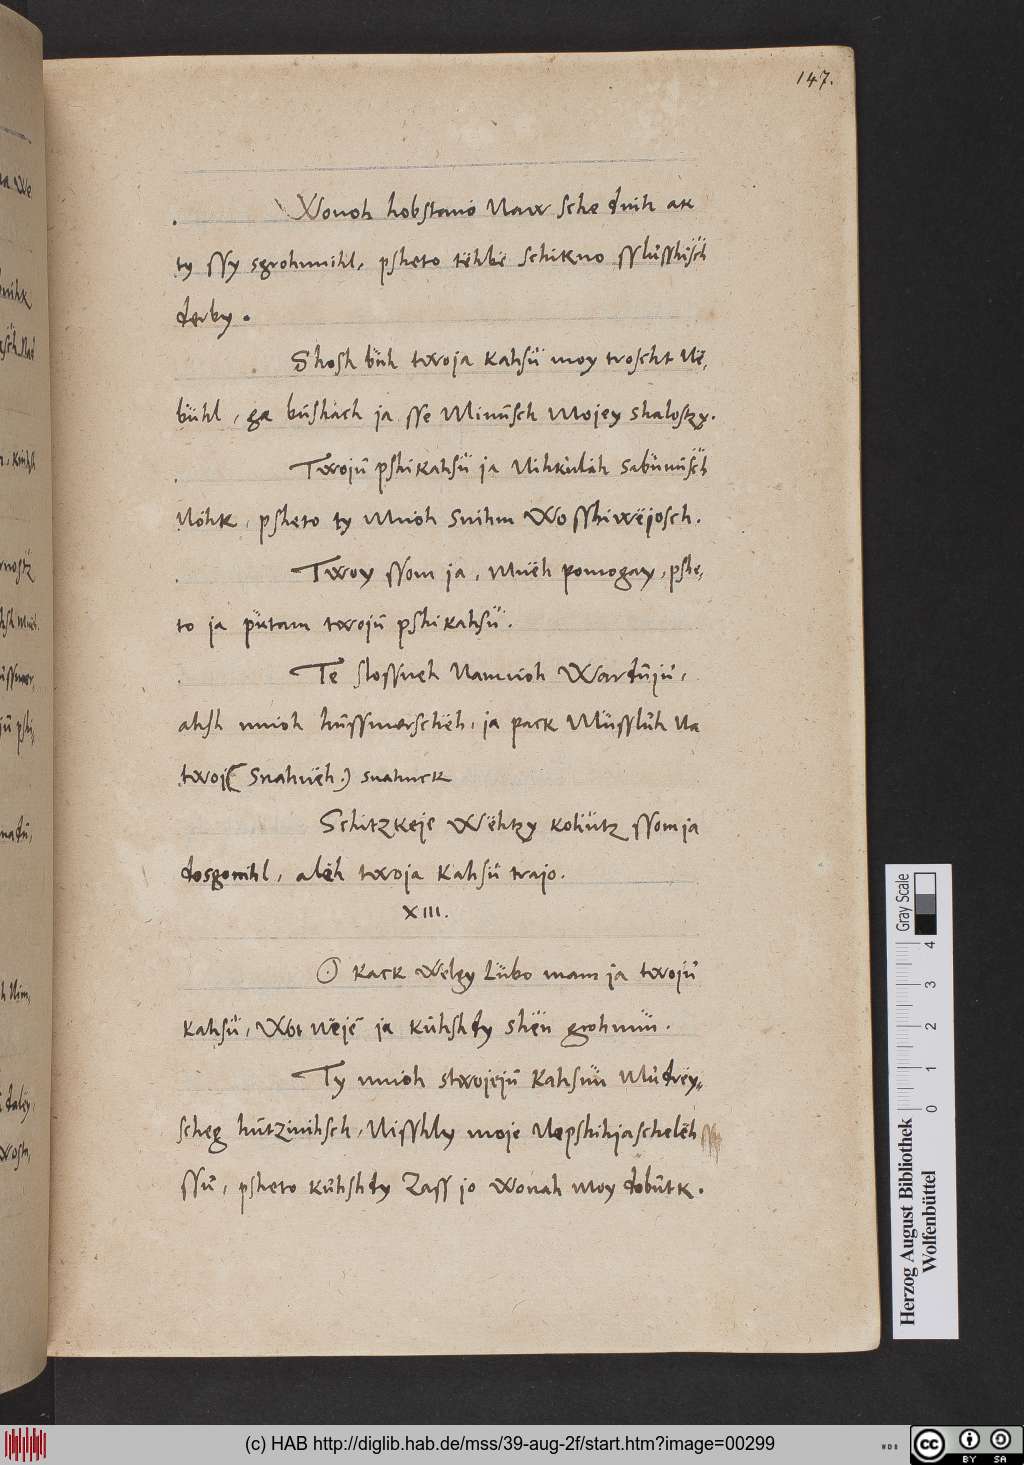 147.
Wonoh hobstano Naw sche dnih ak
ty ssy sgrohmihl, psheto tëhbë schikno sslůsshisch
derby.
Shosh büh twoja kahsü moy troscht Në,
bühl, ga bůshách ja sse Minůsch Mojey shalostzy.
Twojů pshikahsü ja Nihkůláh sabünüsch
Nöhk, psheto ty mnöh snihm Wo sshiwëjosch.
Twoy ssom ja, mnëh pomogay, pshe,
to ja pütam twojů pshikahsü.
Te slossneh Namnöh Wardůjů,
ahsh mnöh hůssmerschëh, ja pack Müsslůh Na
twoj( snahnëh.) snahnck
Schitzkeje Wëhtzy kohütz ssom ja
dosgonihl, alëh twoja kahsů trajo.
XIII.
O kack Welgy Lübo mam ja twojů
kahsü, Wot nëjë ja kůhshdy shën grohmüü.
Ty mnöh stwojejů kahsnü Můdrëy,
scheg hůtzinihsch, Nisshly moje Nepshihjaschelëh
ssů, psheto kůhshdy Zass jo wonah moy dobůtk.
Gray Scale
0 1 2 3 4
Herzog August Bibliothek
Wolfenbüttel
(c) HAB http://diglib.hab.de/mss/39-aug-2f/start.htm?image=00299
WDB
cc BY SA